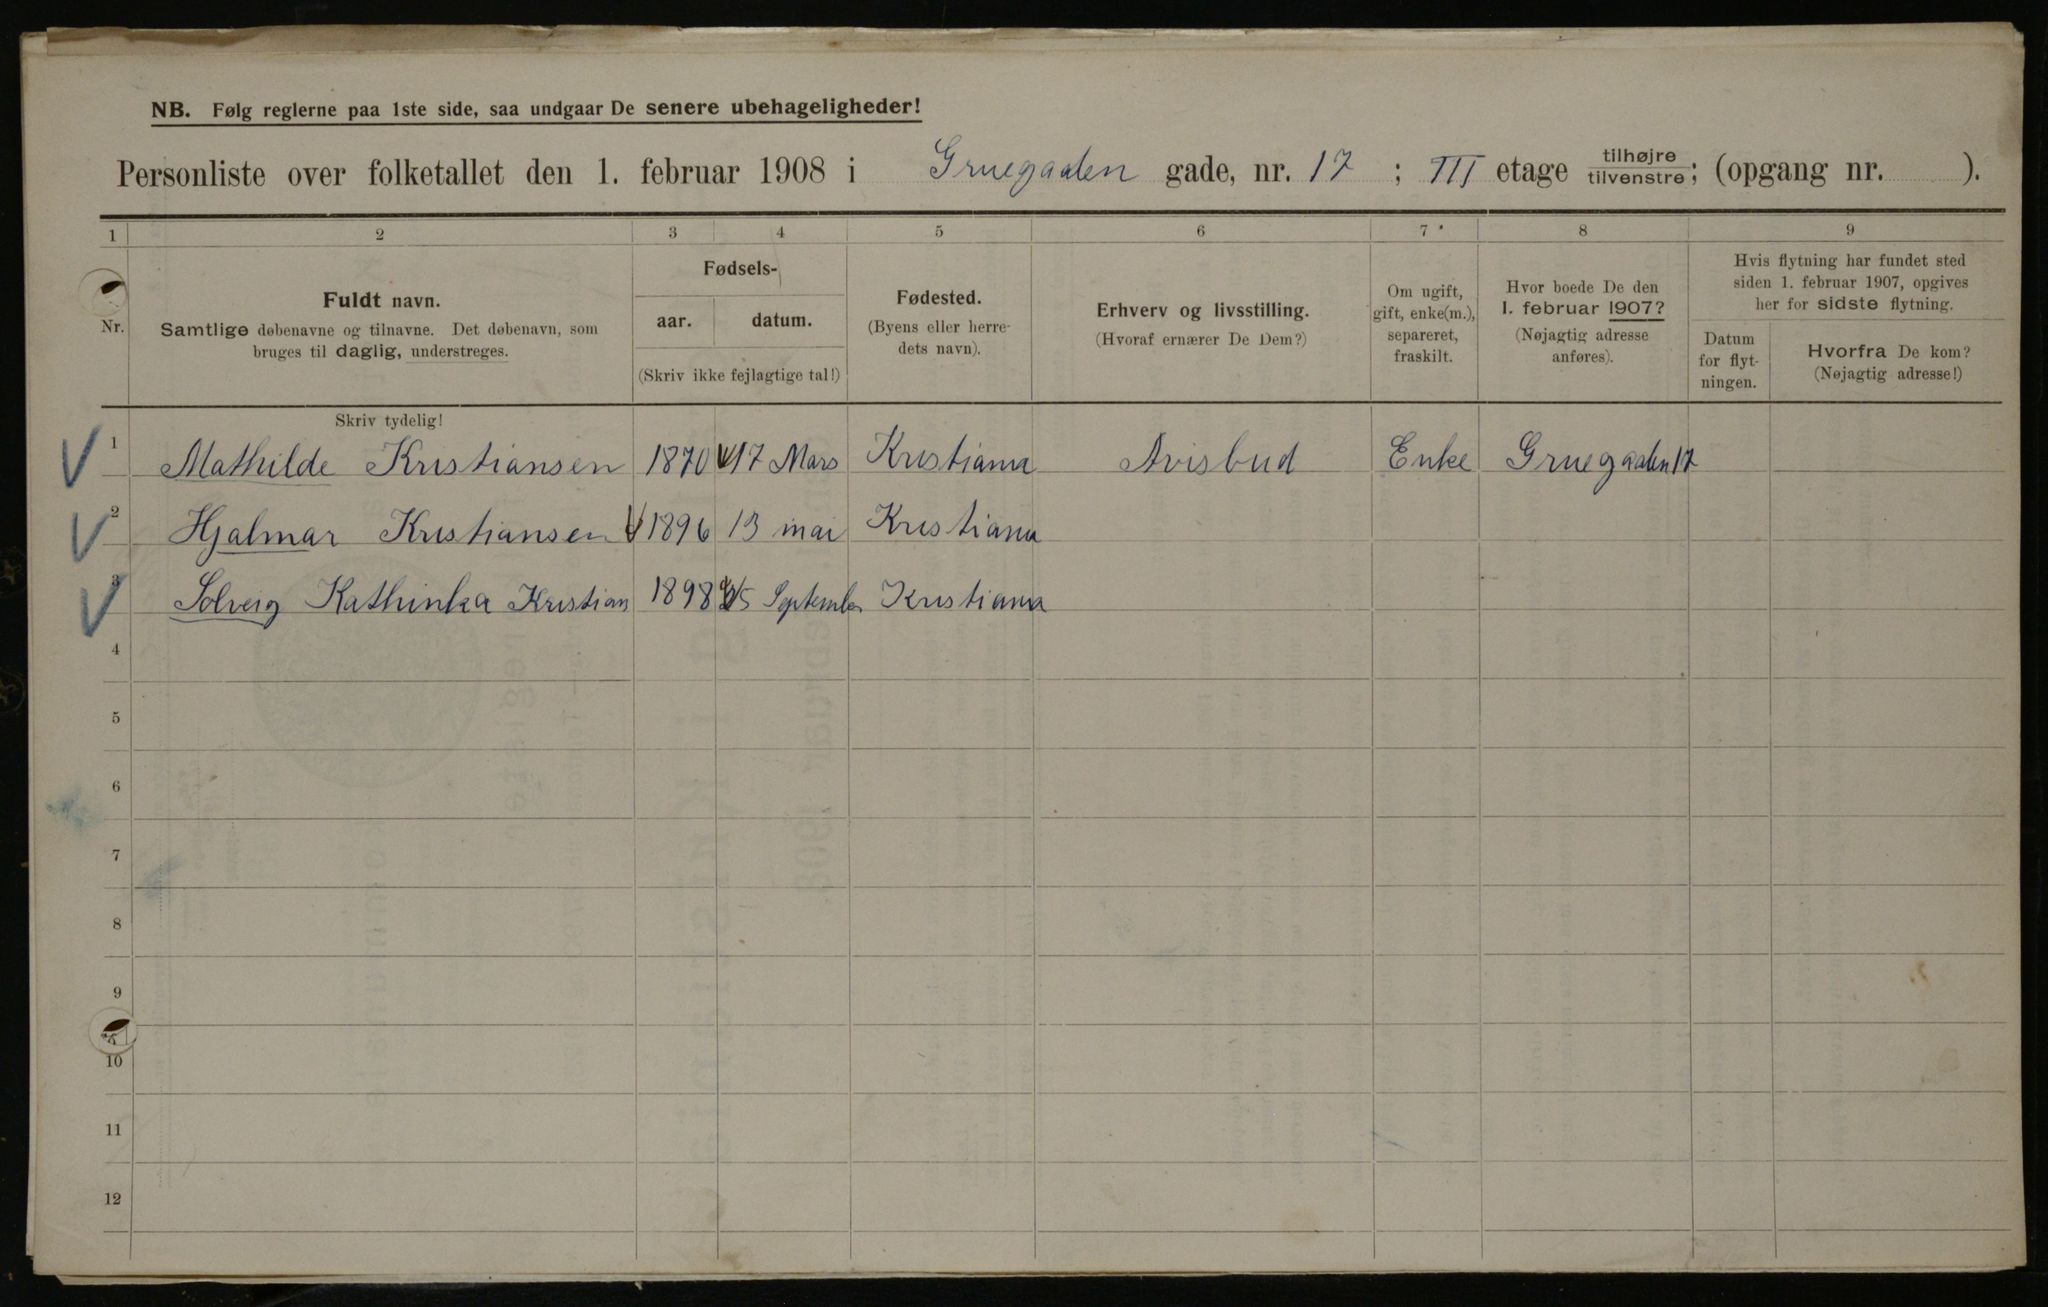 NB. Følg reglerne paa 1ste side, saa undgaar De senere ubehageligheder!
Personliste over folketallet den 1. februar 1908 i Gruegaden gade, nr. 17 ; III etage tilhøjre tilvenstre; (opgang nr. ).
1 2 3 4 5 6 7 8 9
Nr.
Fuldt navn.
Samtlige døbenavne og tilnavne. Det døbenavn, som
bruges til daglig, understreges.
Fødsels-
aar. datum.
(Skriv ikke fejlagtige tal!)
Fødested.
(Byens eller herre-
dets navn).
Erhverv og livsstilling.
(Hvoraf ernærer De Dem?)
Om ugift,
gift, enke(m.),
separeret,
fraskilt.
Hvor boede De den
1. februar 1907?
(Nøjagtig adresse
anføres).
Hvis flytning har fundet sted
siden 1. februar 1907, opgives
her for sidste flytning.
Datum
for flyt-
ningen.
Hvorfra De kom?
(Nøjagtig adresse!)
Skriv tydelig!
1 Mathilde Kristiansen 1870 17 Mars Kristiania Avisbud Enke Gruegaden 17
2 Hjalmar Kristiansen 1896 13 mai Kristiania
3 Solveig Kathinka Kristian 1898 September Kristiania
4
5
6
7
8
9
10
11
12